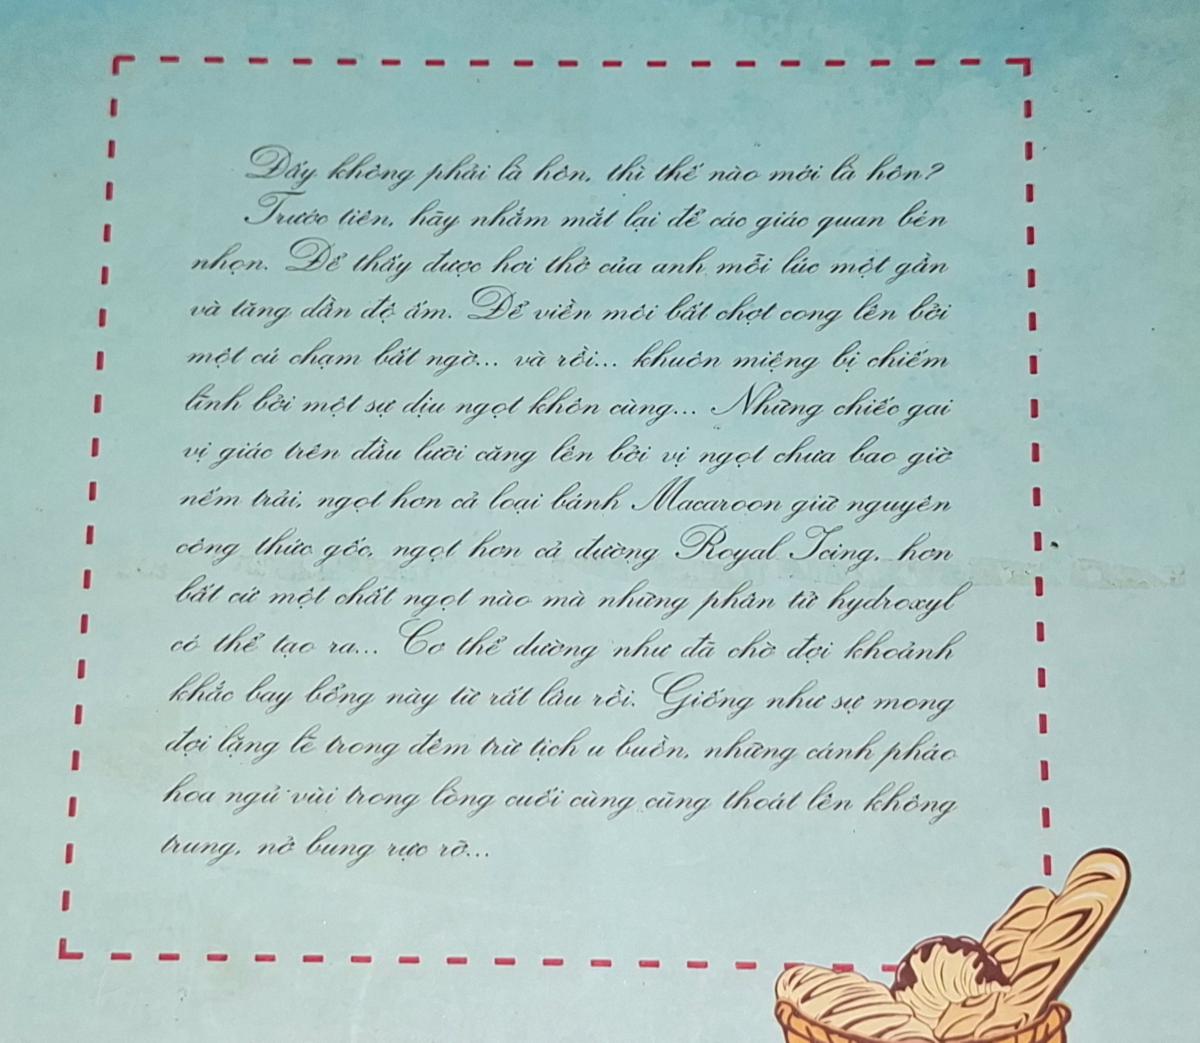 Đấy không phải là hôn, thì thế nào mới là hôn?
Trước tiên, hãy nhắm mắt lại để các giác quan bén
nhọn. Để thấy được hơi thở của anh mỗi lúc một gần
và tăng dần độ ấm. Để viền môi bất chợt cong lên bởi
một cú chạm bất ngờ... và rồi... khuôn miệng bị chiếm
lĩnh bởi một sự dịu ngọt khôn cùng... Những chiếc gai
vị giác trên đầu lưỡi căng lên bởi vị ngọt chưa bao giờ
nếm trải, ngọt hơn cả loại bánh Macaroon giữ nguyên
công thức gốc, ngọt hơn cả đường Royal Icing, hơn
bất cứ một chất ngọt nào mà những phân tử hydroxyl
có thể tạo ra... Cơ thể dường như đã chờ đợi khoảnh
khắc bay bổng này từ rất lâu rồi. Giống như sự mong
đợi lặng lẽ trong đêm trừ tịch u buồn, những cánh pháo
hoa ngủ vùi trong lòng cuối cùng cũng thoát lên không
trung, nở bung rực rỡ...